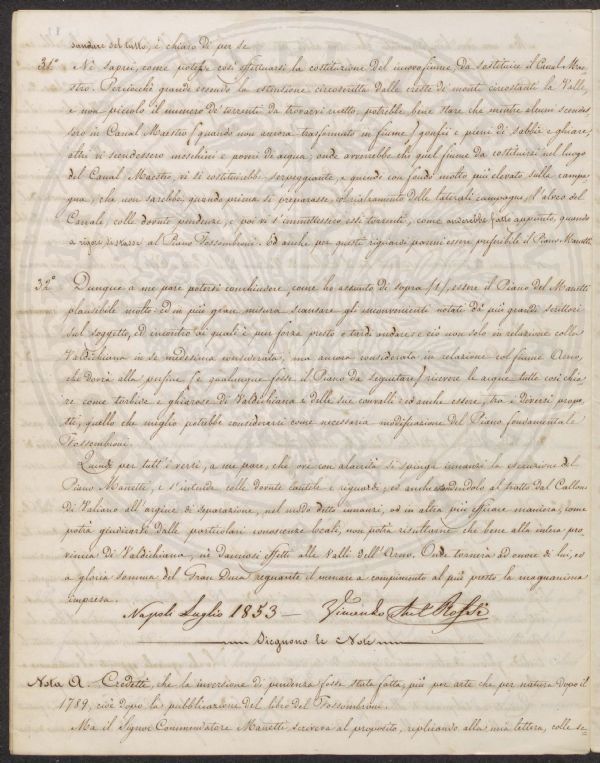 sandare del tutto, è chiaro di per se
31º Nè saprei, come potesse così effettuarsi la costituzione del nuovo fiume, da sostituire il Canal Mae=
stro. Perciocchè grande essendo la estensione circoscritta dalle creste di monti circostanti la Valle,
e non piccolo il numero di torrenti da trovarvi ricetto, potrebbe bene stare che mentre alcuni scendes
sero in Canal Maestro (quando non ancora trasformato in fiume) gonfii e pieni di sabbie e ghiare,
altri vi scendessero meschini e poveri di acqua; onde avverrebbe che quel fiume da costituirsi nel luogo
del Canal Maestro, vi si costituirebbe serpeggiante, e quindi con fondo molto più elevato sulla campa
gna, che non sarebbe, quando prima si preparasse, al rialzamento delle laterali campagne, l'alveo del
Canale, colle dovute pendenze, e poi vi s'immettessero essi torrenti, come anderebbe fatto appunto, quando
a rigore stasse al Piano Fossombroni. Ed anche per questi riguardi parmi essere preferibile il Piano Manetti.
32º Dunque a me pare potersi conchiudere, come ho assunto di sopra (1), essere il Piano del Manetti
plausibile molto: ed in più gran misura scansare gli sconvenimenti notati da' più grandi scrittori
sul soggetto, ed incontro ai quali è per forza presto o tardi andare: e ciò non solo in relazione colla
Valdichiana in se medesima considerata, ma ancora considerata in relazione col fiume Arno,
che dovrà alla perfine (e qualunque fosse il Piano da seguitare) ricevere le acque tutte così chia
re come torbide e ghiarose di Valdichiana e delle sue convalli: ed anche essere, tra i diversi proget
ti, quello che meglio potrebbe considerarsi come necessaria modificazione del Piano fondamentale
Fossombroni.
Quindi per tutt'i versi, a me pare, che ove con alacrità si spinga innanzi la esecuzione del
Piano Manetti, e s'intende colle dovute cautele e riguardi; ed anche estendendolo al tratto dal Callone
di Valiano all'argine di separazione, nel modo detto innanzi, od in altra più efficace maniera, come
potrà giudicarsi dalle particolari conoscenze locali, non potrà risultarne che bene alla intera pro
vincia di Valdichiana, nè dannosi effetti alle Valli dell'Arno. Onde tornerà ad onore di lui, ed
a gloria somma del Gran Duca regnante il menare a compimento al più presto la magnanima
impresa.
Napoli Luglio 1853 — Vincenzo Ant. Rossi
Sieguono le Note
Nota A Credetti, che la inversione di pendenza fosse stata fatta, più per arte che per natura dopo il
1789, cioè dopo la pubblicazione del libro del Fossombroni.
Ma il Signor Commendatore Manetti scriveva al proposito, replicando alla mia lettera, colle se=